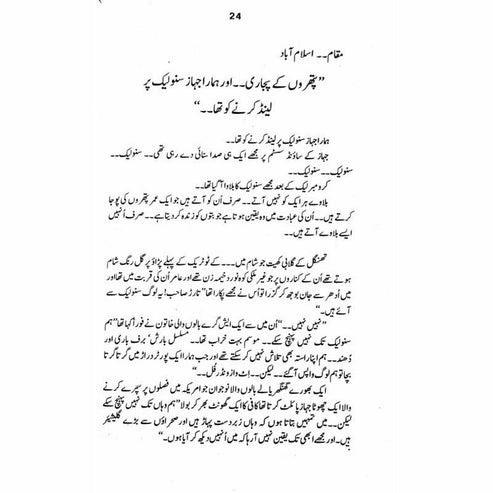 24
مقام۔۔ اسلام آباد
”پتھروں کے پجاری۔۔ اور ہمارا جہاز سنولیک پر
لینڈ کرنے کو تھا۔۔“
ہمارا جہاز سنولیک پر لینڈ کرنے کو تھا۔۔
جہاز کے ساؤنڈ سسٹم پر مجھے ایک ہی صدا سنائی دے رہی تھی۔۔ سنولیک۔۔
سنولیک۔۔ سنولیک۔۔
کرومبر لیک کے بعد مجھے سنولیک کا بلاوا آ گیا تھا۔۔
بلاوے ہر ایک کو نہیں آتے۔۔ صرف اُن کو آتے ہیں جو ایک عمر پتھروں کی پوجا
کرتے ہیں۔۔ اُن کی عبادت میں وہ یقین ہوتا ہے جو بتوں کو زندہ کر دیتا ہے۔۔ صرف اُنہیں
ایسے بلاوے آتے ہیں۔۔
تھنگل کے گلابی کھیت جو شام میں۔۔۔ کے نو ٹریک کے پہلے پڑاؤ پر گل رنگ شام
ہوتے تھے اُن کے کناروں پر جو غیر ملکی کوہ نورد خیمہ زن تھے اور عامر اُن کی قربت میں تھا اور میں
اُدھر سے جان بوجھ کر گزرا تو اُس نے مجھے پکارا تھا ”تارڑ صاحب! یہ لوگ سنولیک سے
آئے ہیں۔“
”نہیں نہیں۔۔“ اُن میں سے ایک ایش گرے بالوں والی خاتون نے فوراً کہا تھا ”ہم
سنولیک تک نہیں پہنچ سکے۔۔ موسم بہت خراب تھا۔۔ مسلسل بارش‘ برف باری اور
دُھند۔۔ ہم اپنا راستہ بھی تلاش نہیں کر سکتے تھے اور جب ہمارا ایک پورٹر دراڑ میں گرتا گرتا
بچا تو ہم لوگ واپس آ گئے۔۔ لیکن۔۔ اِٹ واز ونڈرفُل۔۔“
ایک بھورے گھنگھریالے بالوں والا نوجوان جو امریکہ میں فصلوں پر سپرے کرنے
والا ایک چھوٹا جہاز پائلٹ کرتا تھا کافی کا ایک گھونٹ بھر کر بولا ”ہم وہاں تک نہیں پہنچ سکے
لیکن۔۔ میں تمہیں بتاتا ہوں کہ وہاں زبردست پہاڑ ہیں اور صحراؤں سے بڑے گلیشیئر
ہیں۔ اور مجھے ابھی تک یقین نہیں آ رہا کہ میں اُنہیں دیکھ کر آیا ہوں۔“